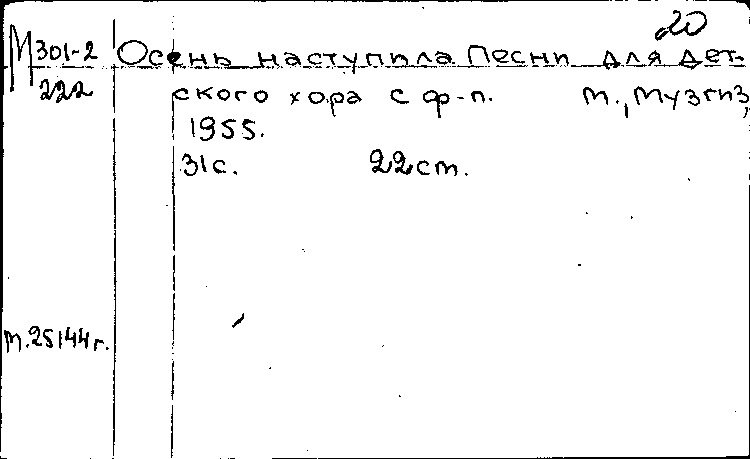 20
М 301-2
222
Осень наступила Песни для дет-
ского хора с ф-п. М., Музгиз,
1955.
31с. 22см.
т.25144г.